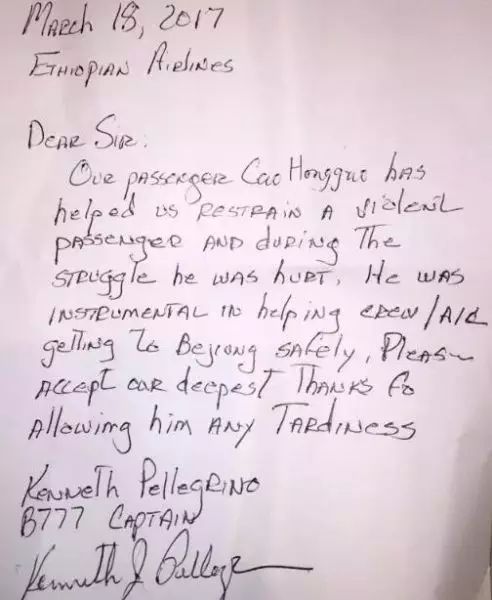 March 18, 2017
Ethiopian Airlines
Dear Sir:
Our passenger Cao Hongguo has
helped us restrain a violent
passenger and during the
struggle he was hurt. He was
instrumental in helping crew/A/C
getting to Bejiong safely, Please
accept our deepest Thanks fo
Allowing him any Tardiness
Kenneth Pellegrino
B777 Captain
Kenneth J